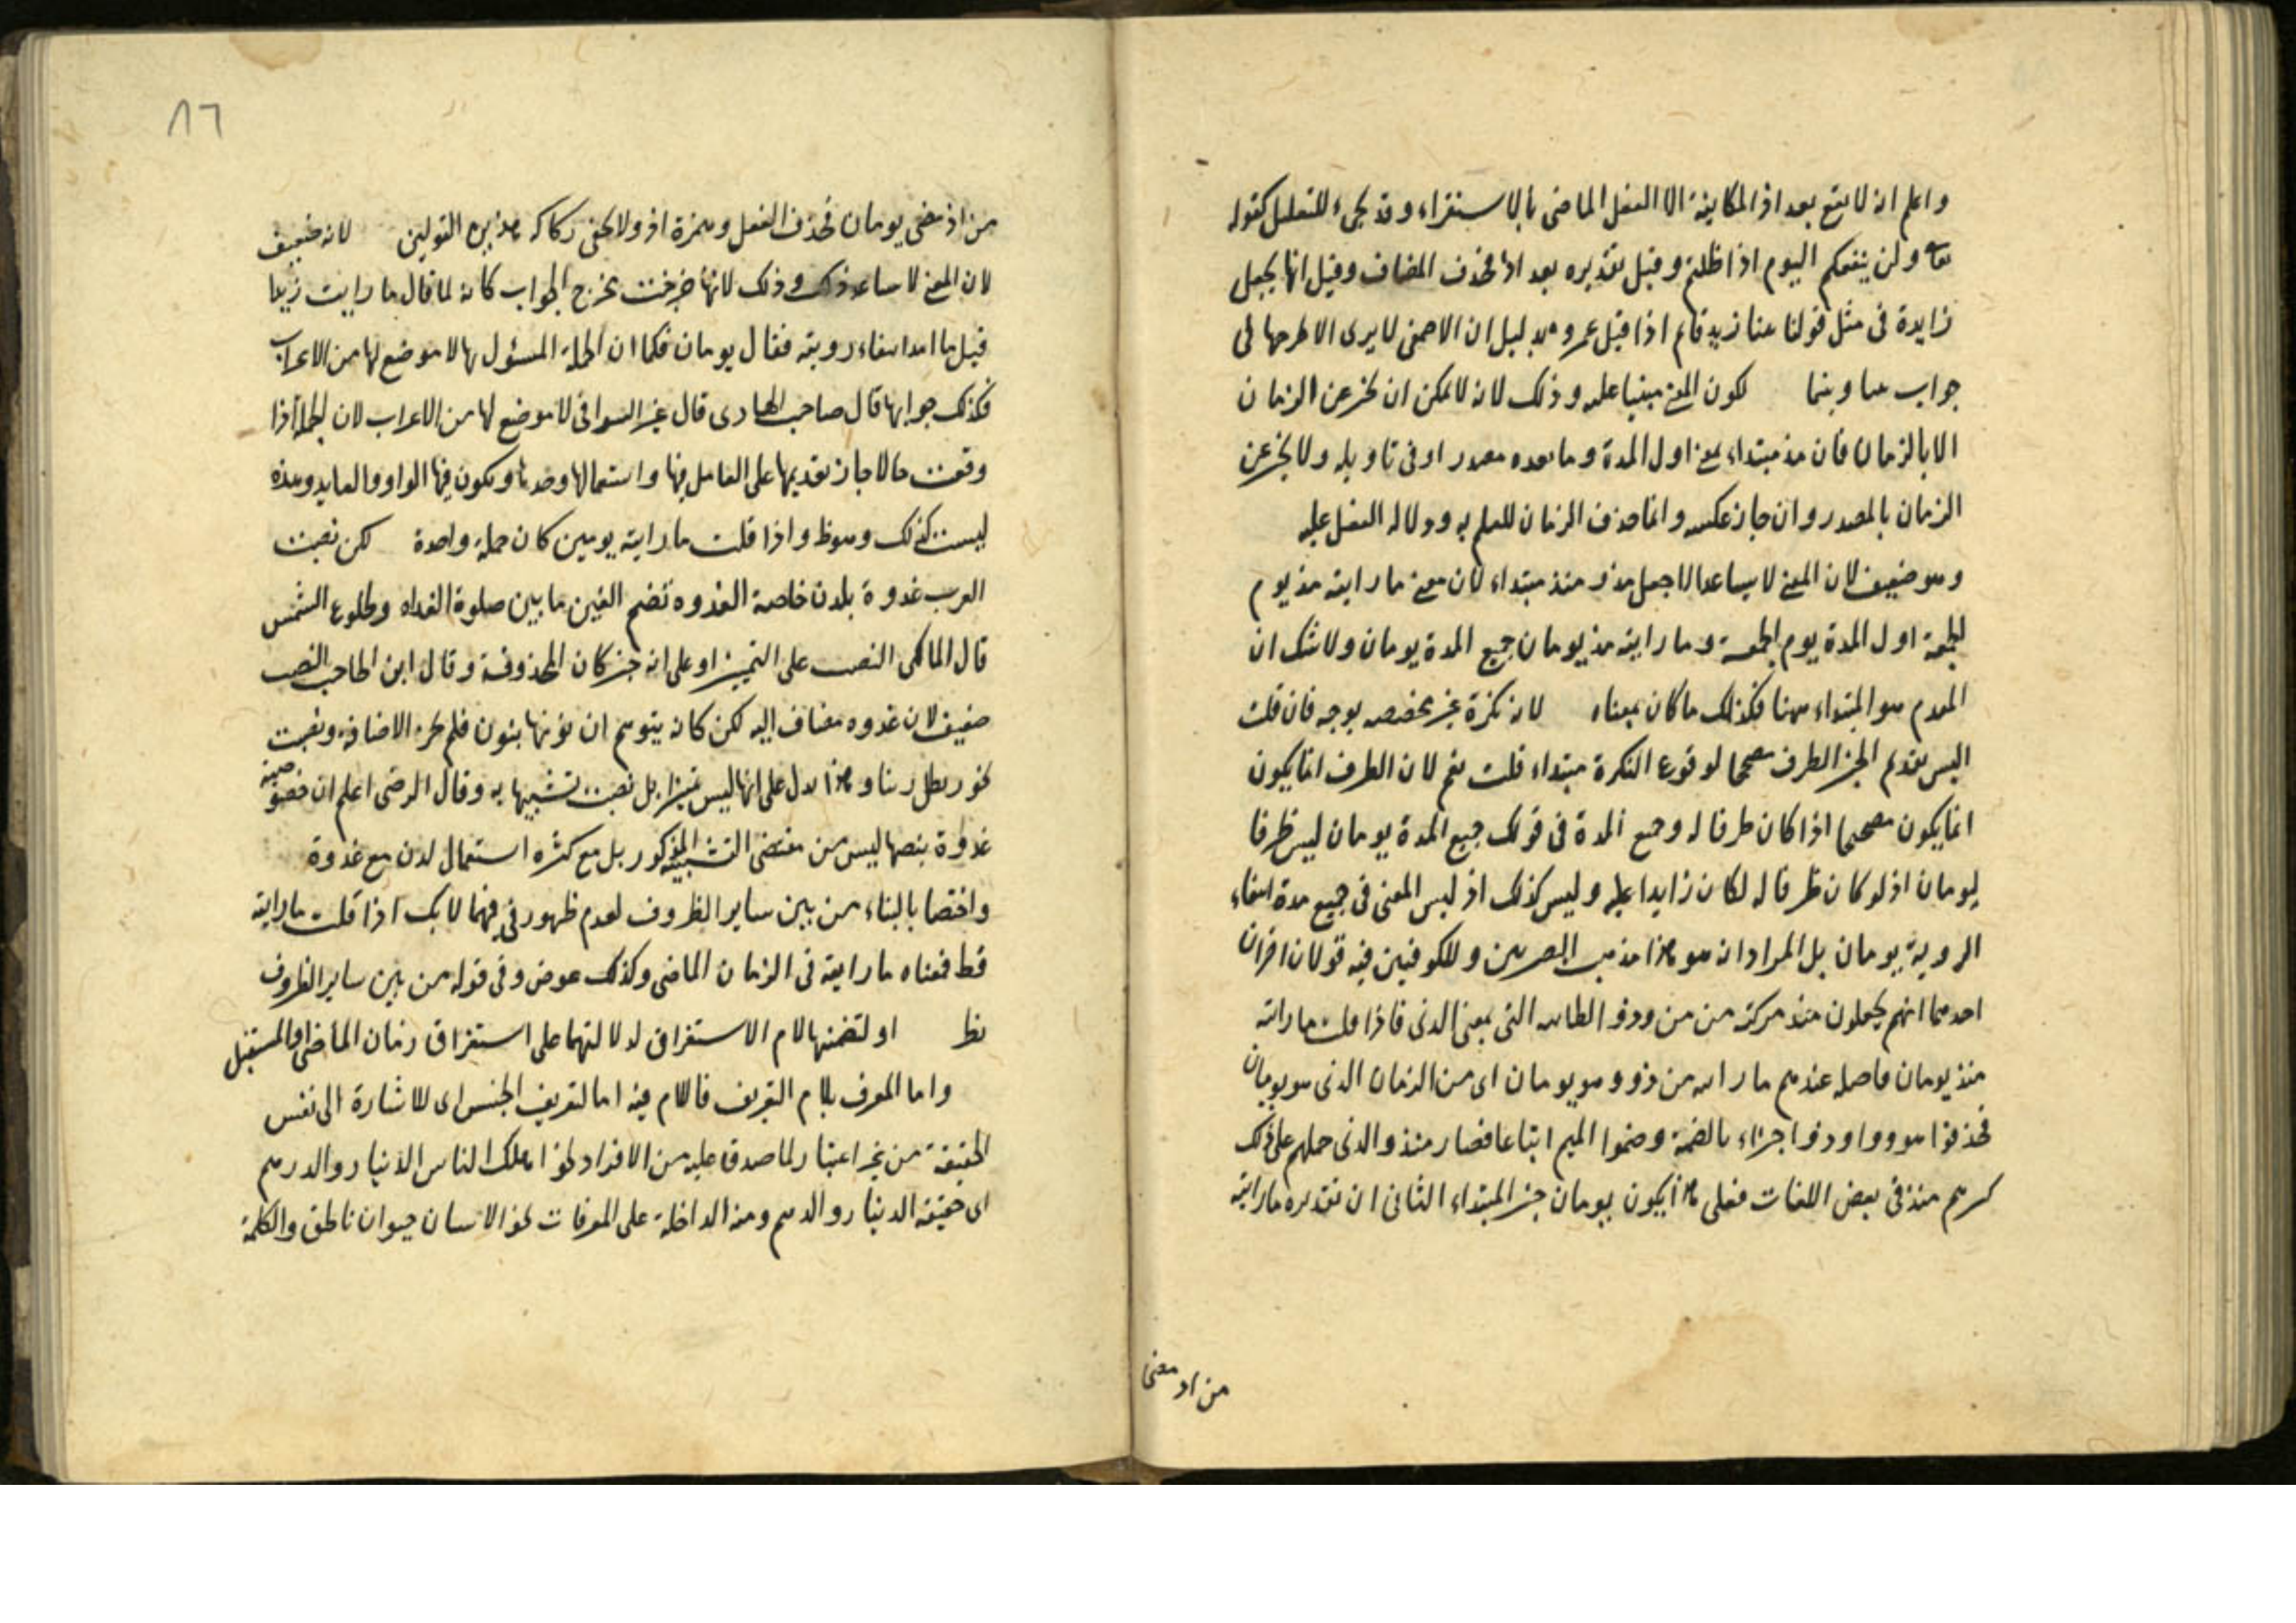 واعلم انه لا يقع بعد اذ المكانية الا الفعل الماضى بالاستقراء وقد يجىء للتعليل كقوله
تعالى ولن ينفعكم اليوم اذ اظلمتم وقيل تقديره بعد اذ فحذف المضاف وقيل انها يجعل
زايدة فى مثل قولنا بينا زيد قام اذا قبل عمرو بدليل ان الاصمعى لا يرى الا طرحها فى
جواب بينا وبينما لكون المعنى مبنيا عليه وذلك لانه لا يمكن ان يخبر عن الزمان
الا بالزمان فان مذ مبتداء بمعنى اول المدة وما بعده مصدر او فى تاويله ولا يخبر عن
الزمان بالمصدر وان جاز عكسه وانما حذف الزمان للعلم به ودلالة الفعل عليه
وهو ضعيف لان المعنى لا يساعد الا جعل مذ ومنذ مبتداء لان معنى ما رايته مذ يوم
الجمعة اول المدة يوم الجمعة وما رايته مذ يومان جميع المدة يومان ولا شك ان
المقدم هو المبتداء ههنا فكذلك ما كان بمعناه لانه نكرة غير مخصصه بوجه فان قلت
اليس تقدم الخبر الظرف مصححا لوقوع النكرة مبتداء قلت نعم لان الظرف انما يكون
انما يكون مصححا اذا كان ظرفا له وجميع المدة فى قولك جميع المدة يومان ليس ظرفا
ليومان اذ لو كان ظرفا له لكان زايدا عليه وليس كذلك اذ ليس المعنى فى جميع مدة انتفاء
الروية يومان بل المراد انه هو هذا مذهب البصريين وللكوفيين فيه قولان اخران
احدهما انهم يجعلون منذ مركبة من من وذو الطائيه التى بمعنى الذى فاذا قلت ما رايته
منذ يومان فاصله عندهم ما رايته من ذو هو يومان اى من الزمان الذى هو يومان
فحذفوا هو وواو ذو اجتزاء بالضمة وضموا الميم اتباعا فصار منذ والذى حملهم على ذلك
كسرهم منذ فى بعض اللغات فعلى هذا يكون يومان خبر المبتداء الثانى ان تقديره ما رايته
من اذ مضى
٨٦
من اذ مضى يومان فحذف الفعل وهمزة اذ ولا يخفى ركاكة هذين القولين لانه ضعيف
لان المعنى لا يساعد ذلك وذلك لانها خرجت مخرج الجواب كانه لما قال ما رايت زيدا
قيل ما امد انتفاء رويته فقال يومان فكما ان الجملة المسئول بها لا موضع لها من الاعراب
فكذلك جوابها قال صاحب الهادى قال غير السيرافى لا موضع لها من الاعراب لان الجملة اذا
وقعت حالا جاز تقديمها على العامل فيها واستعمالها وحدها ويكون فيها الواو والعايد وهذه
ليست كذلك وهو ظ واذا قلت ما رايته يومين كان جملة واحدة لكن نصبت
العرب غدوة بلدن خاصة الغدوه تضم الغين ما بين صلوة الغداه وطلوع الشمس
قال المالكى النصب على التمييز او على انه خبر كان المحذوفة وقال ابن الحاجب النصب
ضعيف لان غدوه مضاف اليه لكن كان يتوهم ان نونها بنون فلم يجز الاضافة ونصبت
نحو رطل زيتا وهذا يدل على انها ليس تميزا بل نصبت تشبيها به وقال الرضى اعلم ان خصوصية
غدوة بنصبها ليس من مقتضى التشبيه المذكور بل مع كثرة استعمال لدن مع غدوة
واختصا بالبناء من بين ساير الظروف لعدم ظهور فى فيهما لانك اذا قلت ما رايته
قط فمعناه ما رايته فى الزمان الماضى وكذلك عوض وفى قوله من بين ساير الظروف
نظ او لتضمنهما لام الاستغراق لدلالتهما على استغراق زمان الماضى والمستقبل
واما المعرف بلام التعريف فاللام فيه اما لتعريف الجنس اى للاشارة الى نفس
الحقيقة من غير اعتبار لما صدق عليه من الافراد نحو اهلك الناس الدينار والدرهم
اى حقيقة الدينار والدرهم ومنه الداخلة على المعرفات نحو الانسان حيوان ناطق والكلمة